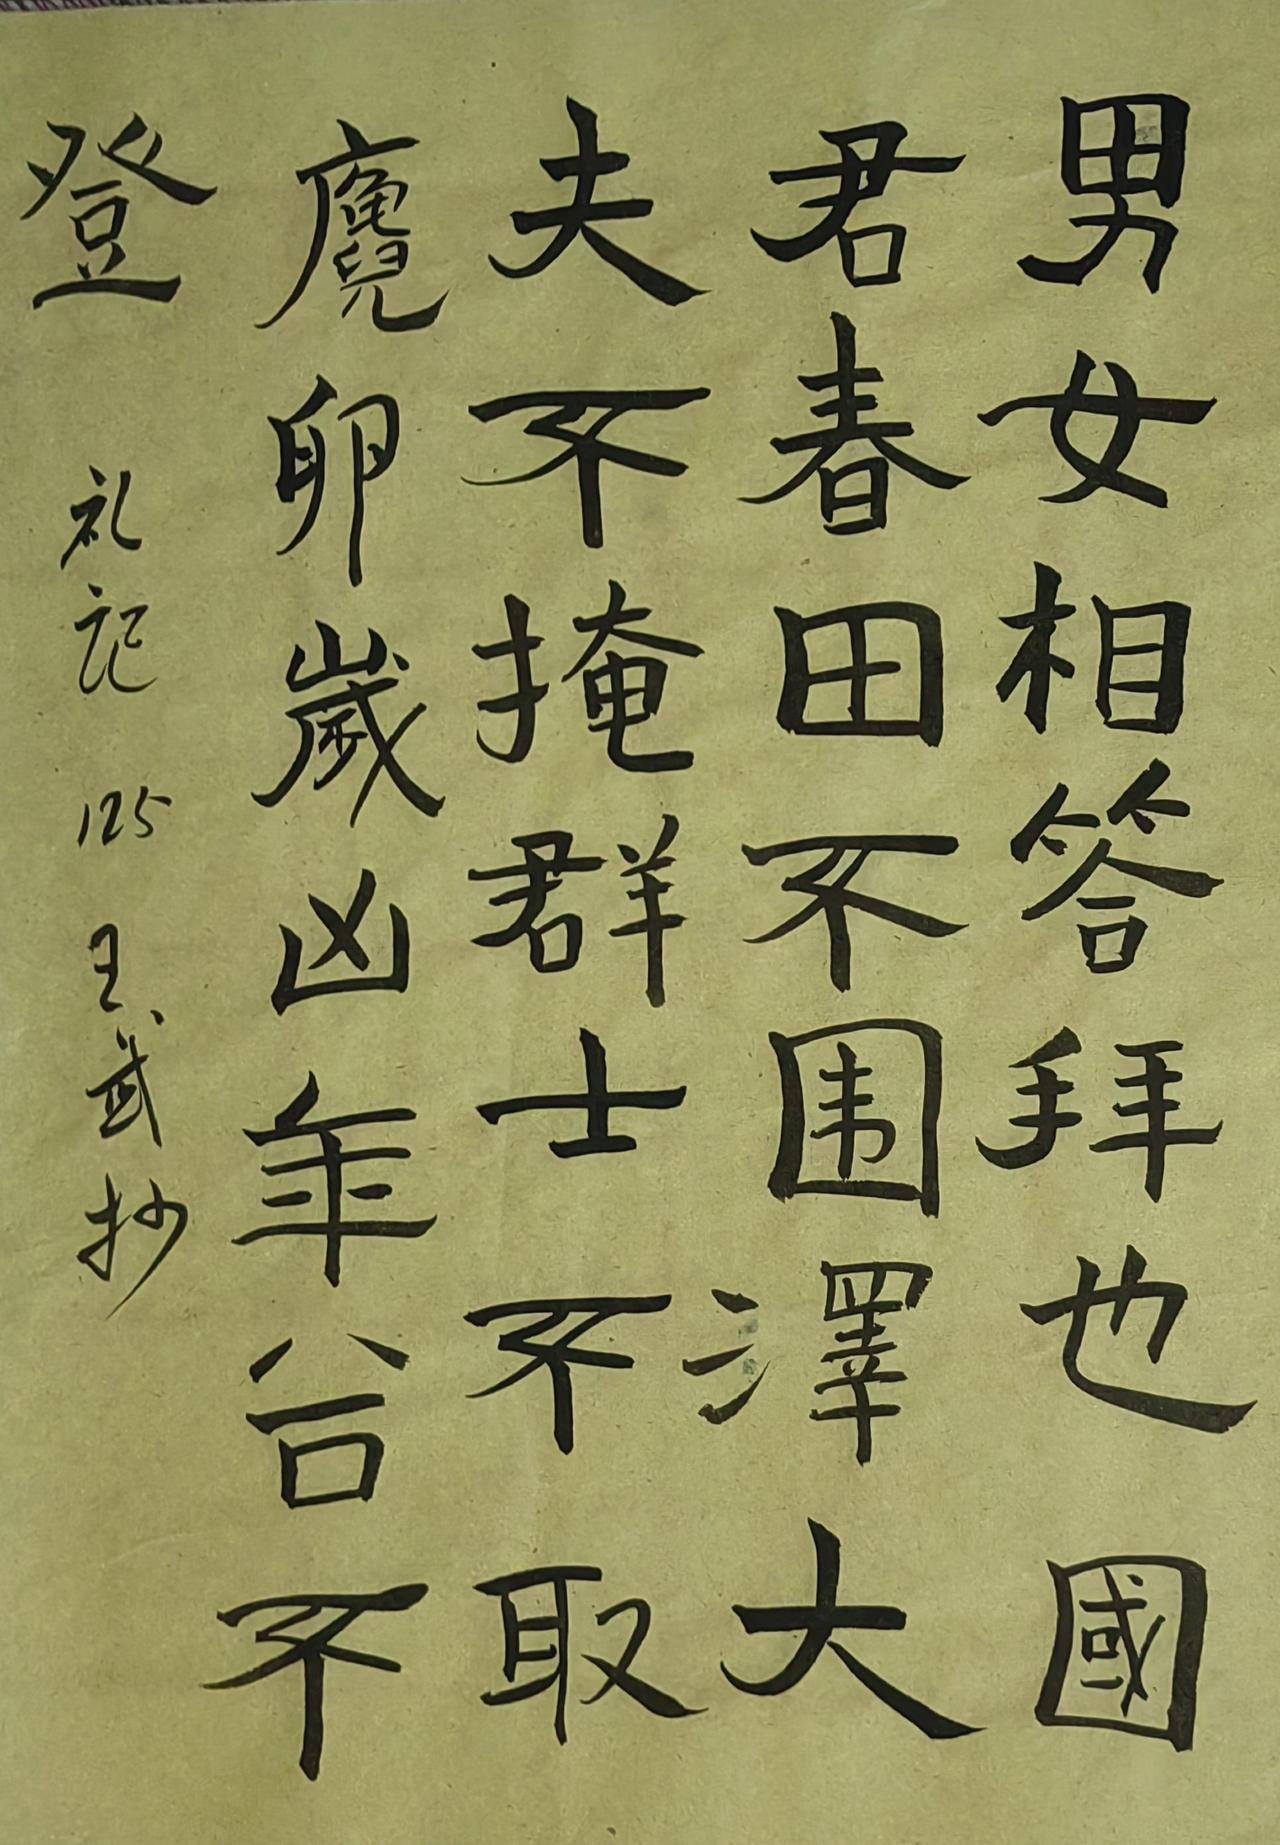 男女相答拜也國
君春田不围澤大
夫不掩群士不取
麛卵歲凶年谷不
登
礼记 125 王武抄